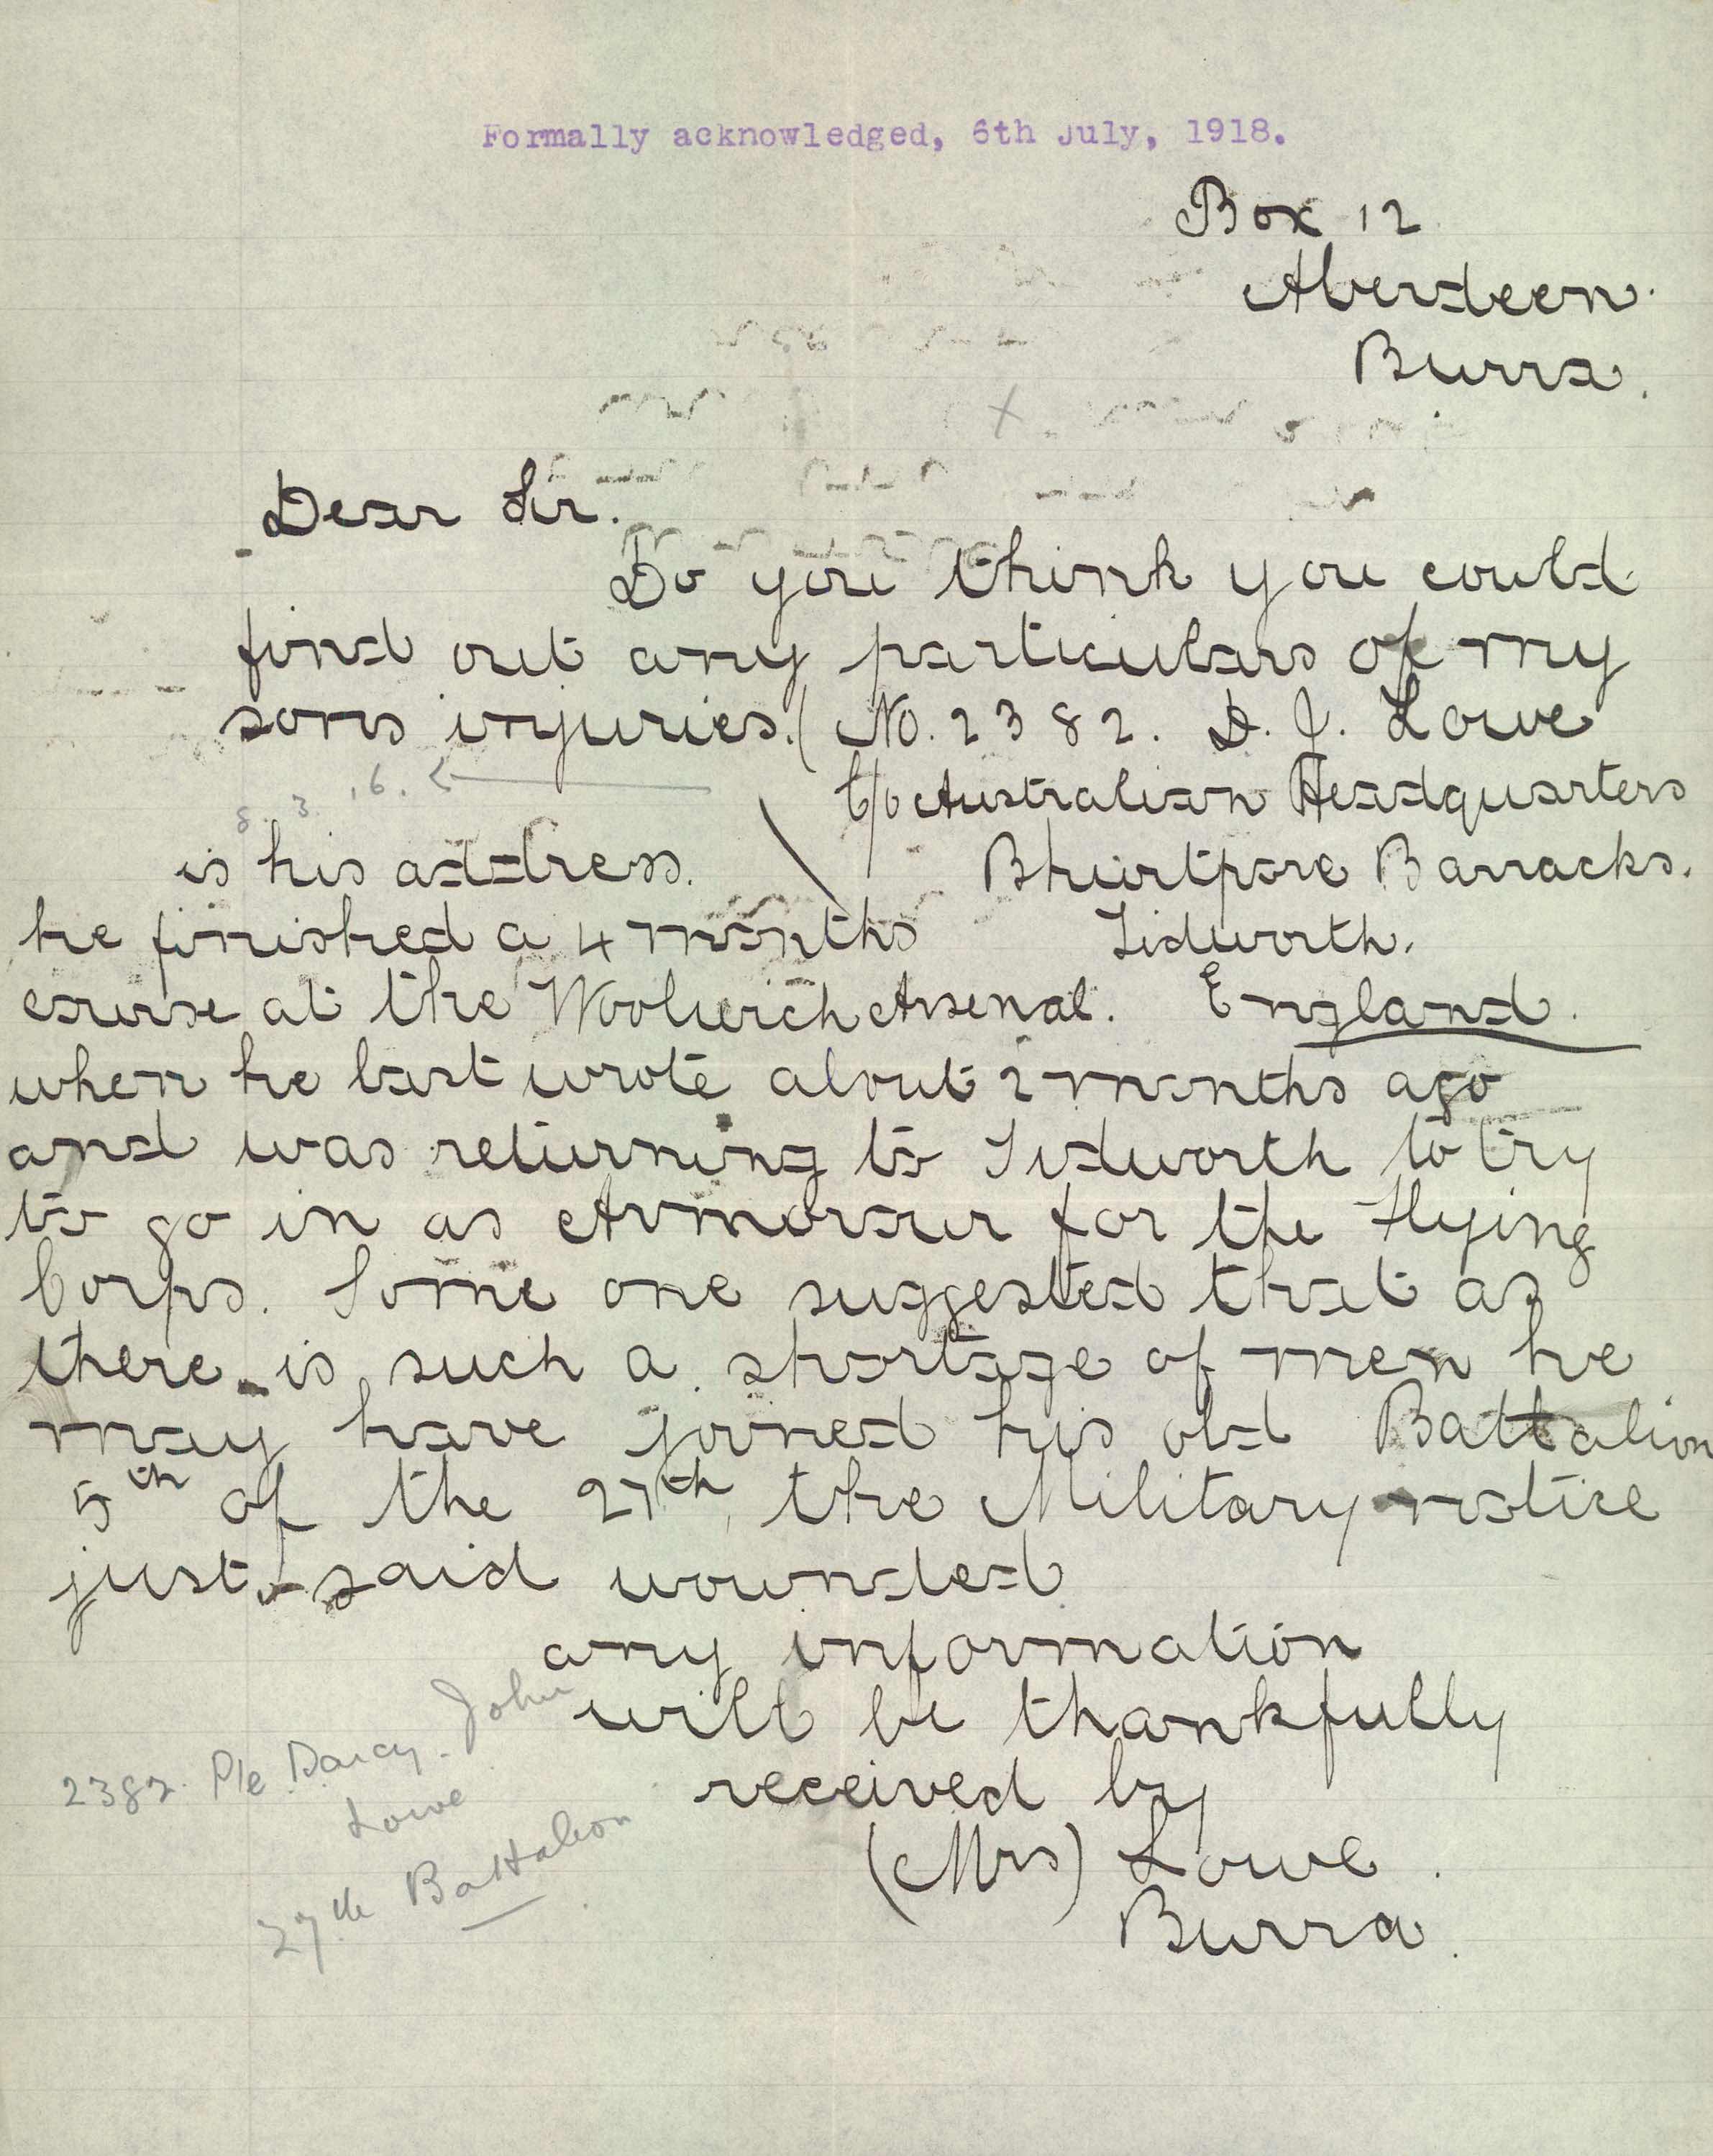 Formally acknowledged, 6th July, 1918.
Box 12
Aberdeen.
Burra.
Dear Sir.
Do you think you could
find out any particulars of my
sons injuries. (No. 2382. D. J. Lowe
8. 3. 16.
C/o Australian Headquarters
is his address.
Bhurtpore Barracks.
he finished a 4 months
Tidworth.
course at the Woolwich Arsenal.
England.
when he last wrote about 2 months ago
and was returning to Tidworth to try
to go in as Armourour for the Flying
Corps. Some one suggested that as
there is such a shortage of men he
may have joined his old Battalion
5th of the 27th, the Military notice
just said wounded
any information
will be thankfully
received by
(Mrs) Lowe.
Burra.
2382. Pte Darcy John
Lowe
27th Battalion